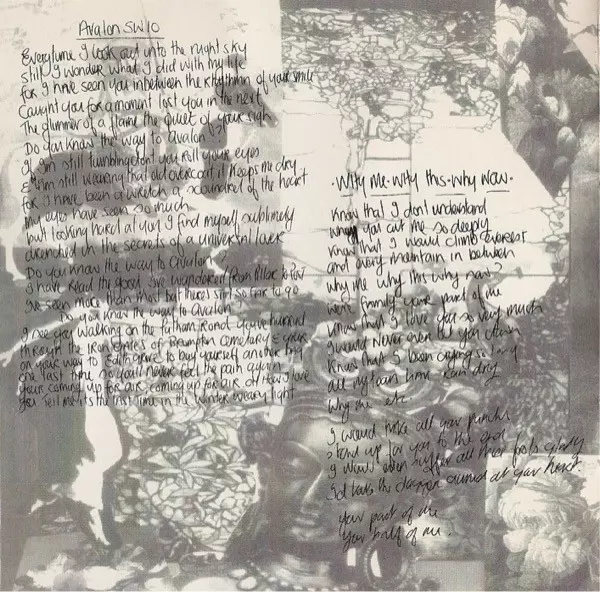 Avalon SW10
Everytime I look out into the night sky
still I wonder what I did with my life
for I have seen you inbetween the rhythmn of your smile
Caught you for a moment lost you in the next
The glimmer of a flame the quiet of your sigh
Do you know the way to Avalon
If I'm still tumbling don't you roll your eyes
& I'm still wearing that old overcoat it keeps me dry
for I have been a wretch a scoundrel of the
my eyes have seen so much
but looking hard at you I find myself sublimely
drenched in the secrets of a universal love
Do you know the way to Avalon
I have read the good I've wandered from Pillar to
I've seen more than most but there's still so far to go
Do you know the way to Avalon
I see you walking on the fulham Road
through the Iron gates of Brompton cemetary &
on your way to Edith grove to buy yourself another
one last time so you'll never feel the pain again
your coming up for air coming up for air oh How I love
you Tell me it's the last time in the Winter weary light
·Why Me·Why this·Why Now·
Know that I don't understand
why you cut me so deeply
Know that I would climb everest
and every mountain in between
why me why this why now?
were family your part of me
Know that I love you so very much
I would Never ever let you down
Know that I been crying so
all my tears have run dry
Why me etc..
I would take all your punches
stand up for you to the
I would even suffer all
took the dagger aimed at your heart
your part of me
your half of me.